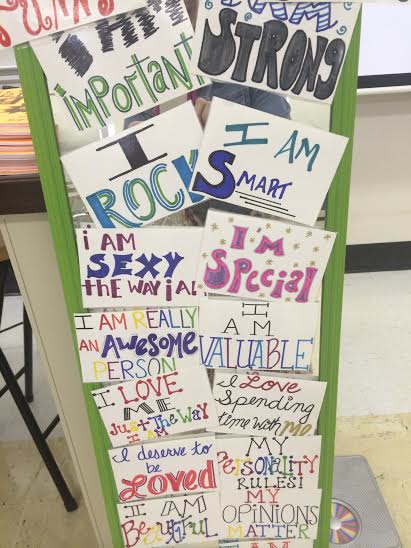 I AM
IMPORTANT
I AM
STRONG
I
ROCK
I AM
SMART
i AM
SEXY
the WAY i AM
I'M
Special
I AM REALLY
AN AWESOME
PERSON
I
AM
VALUABLE
I LOVE
ME
Just The WAY
I AM
I Love
Spending
time with ME
I deserve to
be
Loved
MY
PERSONALITY
RULES!
I AM
Beautiful
MY
OPINIONS
MATTER
I AM